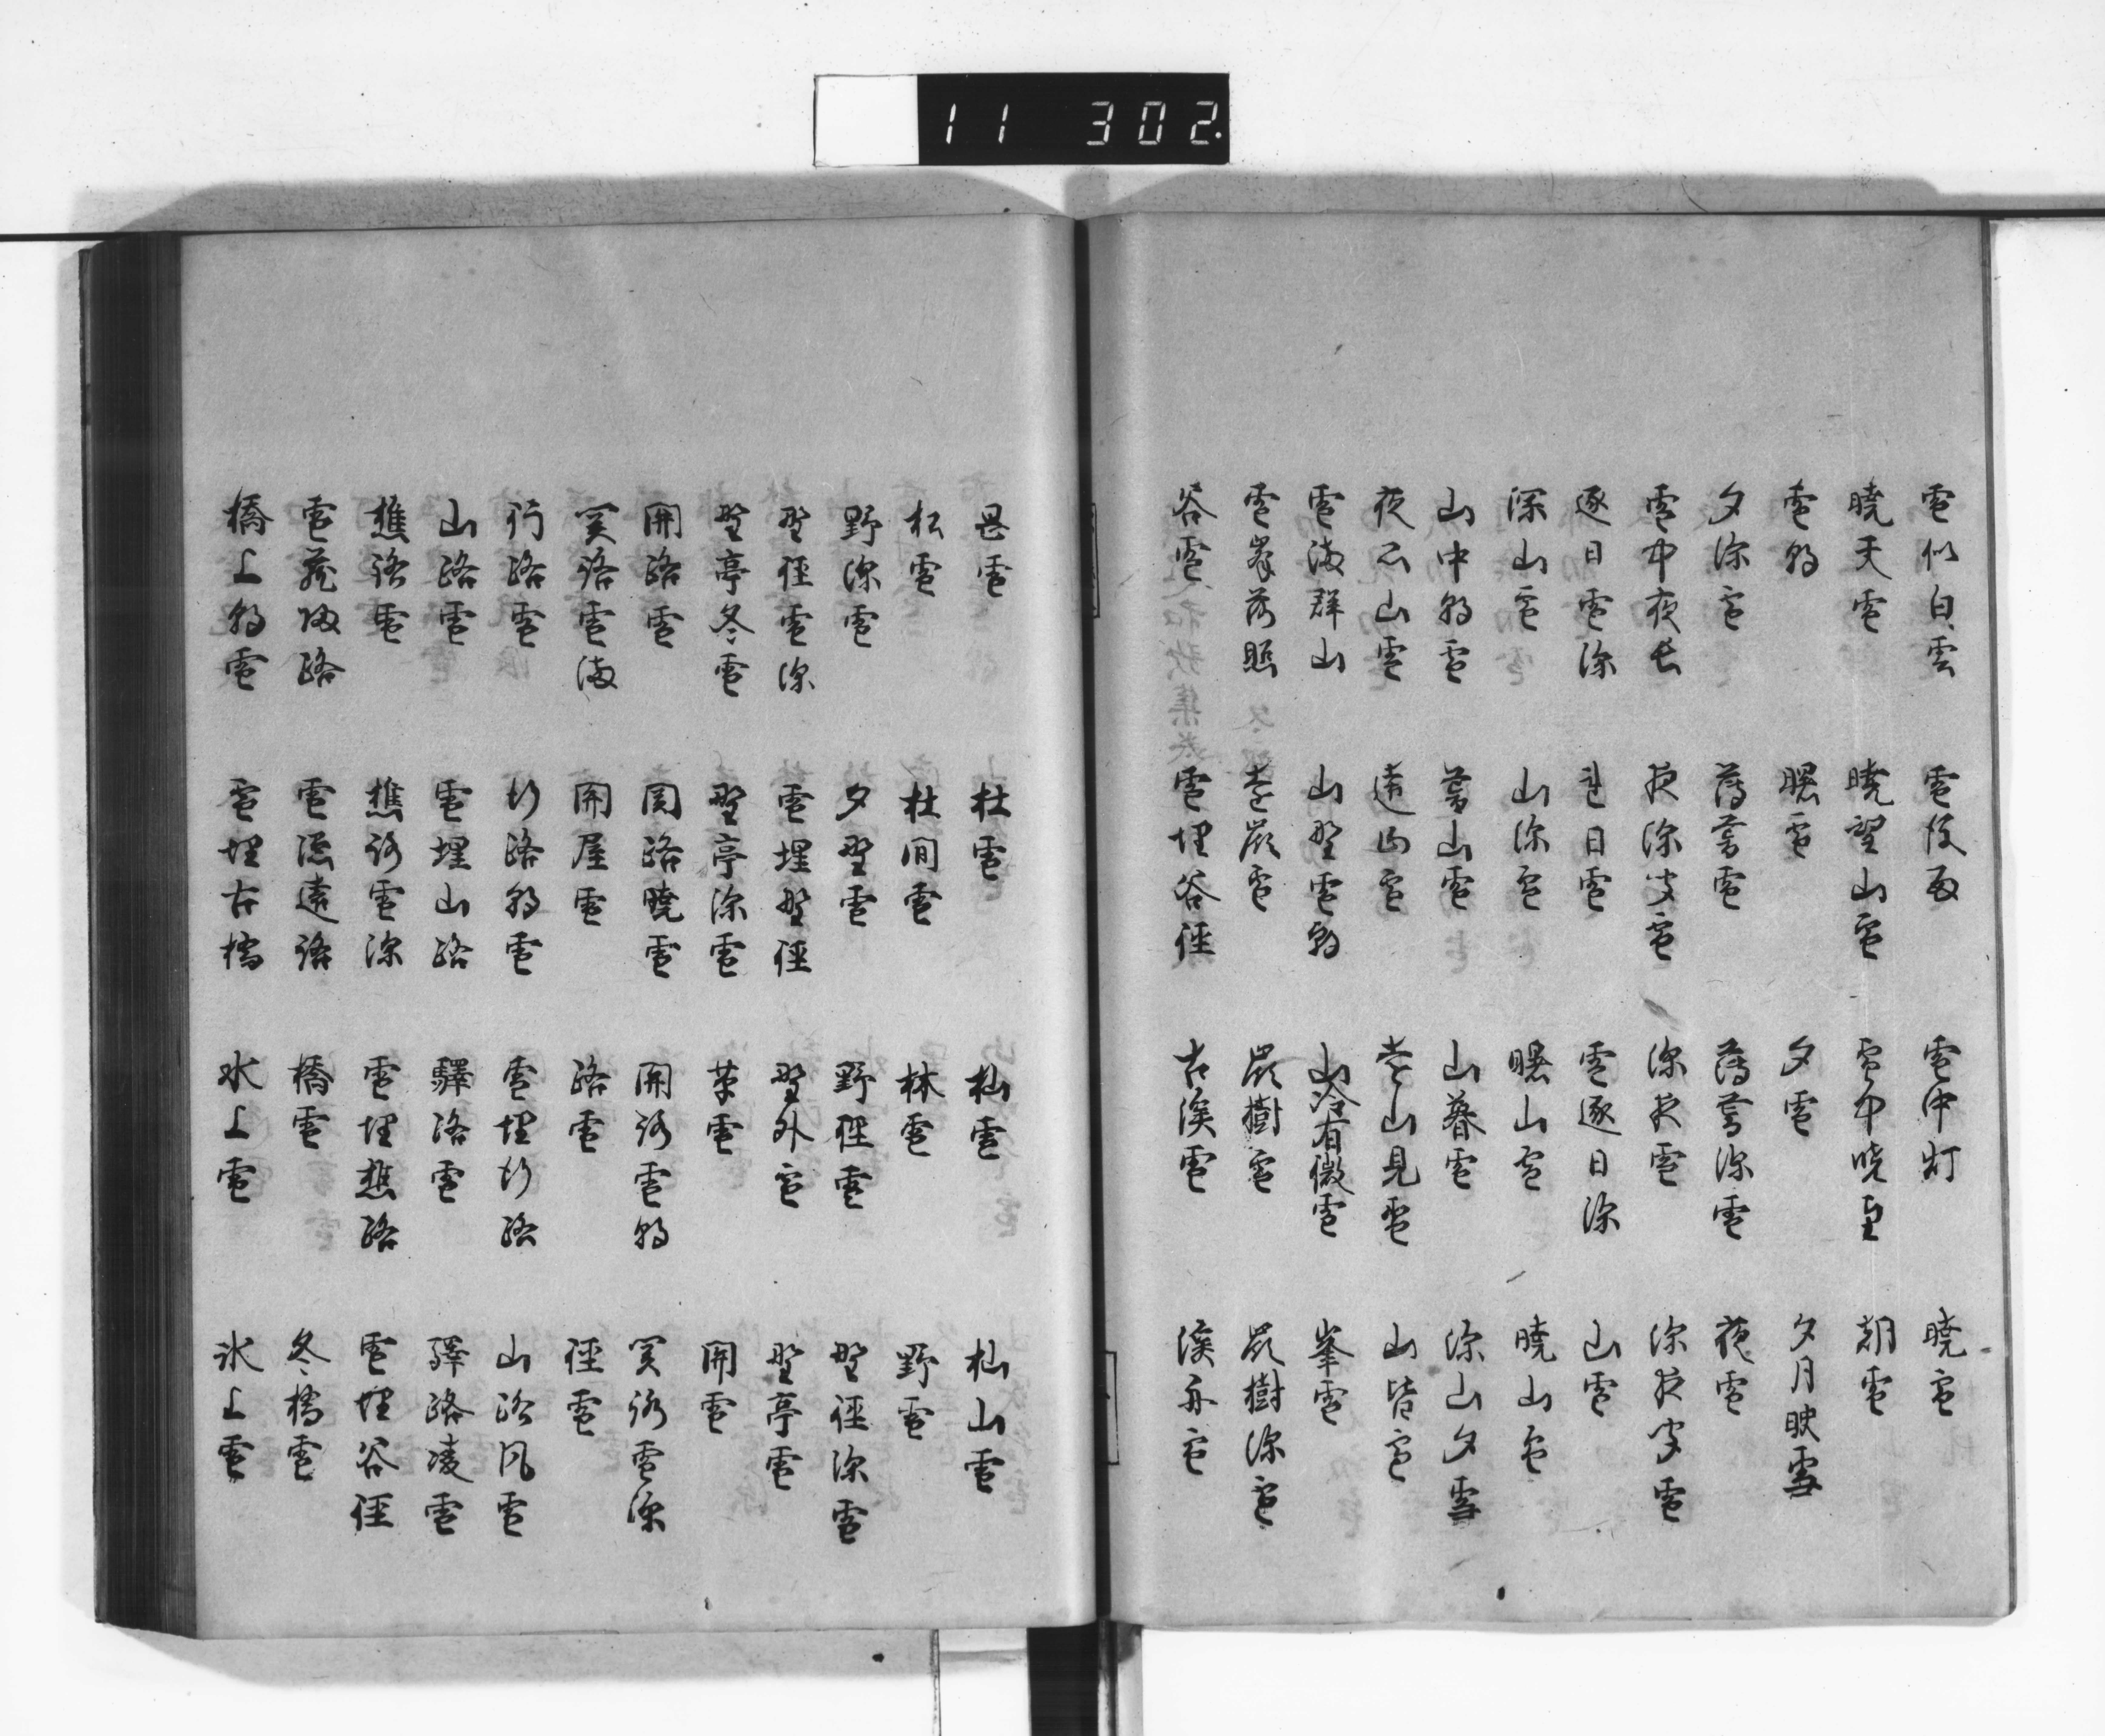 11 302.
雪似白雲 雪後雨 雪中灯 暁雪
暁天雪 暁望山雪 雪中暁望 朝雪
雪朝 曙雪 夕雪 夕月映雪
夕深雪 薄暮雪 薄暮深雪 夜雪
雪中夜長 夜深聞雪 深夜雪 深夜聞雪
逐日雪深 連日雪 雪逐日深 山雪
深山雪 山深雪 曙山雪 暁山雪
山中朝雪 暮山雪 山暮雪 深山夕雪
夜思山雪 遠山雪 遠山見雪 山皆雪
雪満群山 山野雪朝 山冷有微雪 峯雪
雪峯落照 遠嶺雪 嶺樹雪 嶺樹深雪
谷雪 雪埋谷径 古渓雪 渓舟雪
杜雪 杣雪 杣山雪
松雪 杜間雪 林雪 野雪
野深雪 夕野雪 野径雪 野径深雪
野径雪深 雪埋野径 野外雪 野亭雪
野亭冬雪 野亭深雪 草雪 関雪
関路雪 関路暁雪 関路雪朝 関路雪深
関路雪満 関屋雪 路雪 径雪
行路雪 行路朝雪 雪埋行路 山路風雪
山路雪 雪埋山路 驛路雪 驛路凌雪
樵路雪 樵路雪深 雪埋樵路 雪埋谷径
雪蔵帰路 雪隠遠路 橋雪 冬橋雪
橋上朝雪 雪埋古橋 水上雪 氷上雪